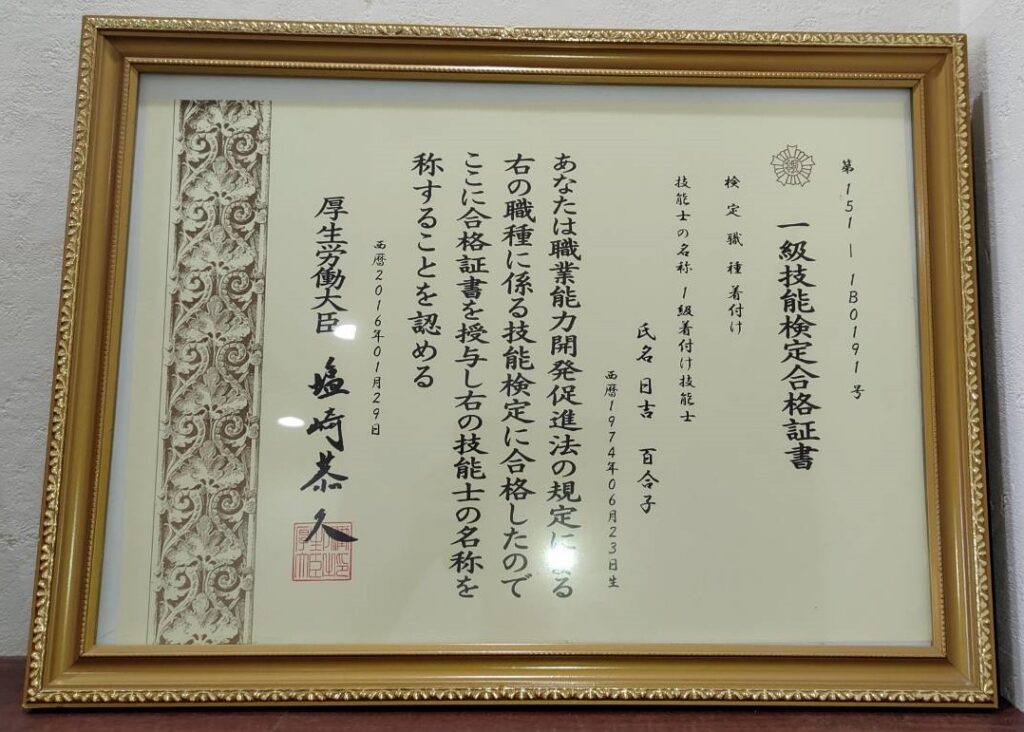 第151-1B0191号
一級技能検定合格証書
検定職種 着付け
技能士の名称 1級着付け技能士
氏名 日吉 百合子
西暦1974年06月23日生
あなたは職業能力開発促進法の規定による
右の職種に係る技能検定に合格したので
ここに合格証書を授与し右の技能士の名称を
称することを認める
西暦2016年01月29日
厚生労働大臣 塩崎恭久